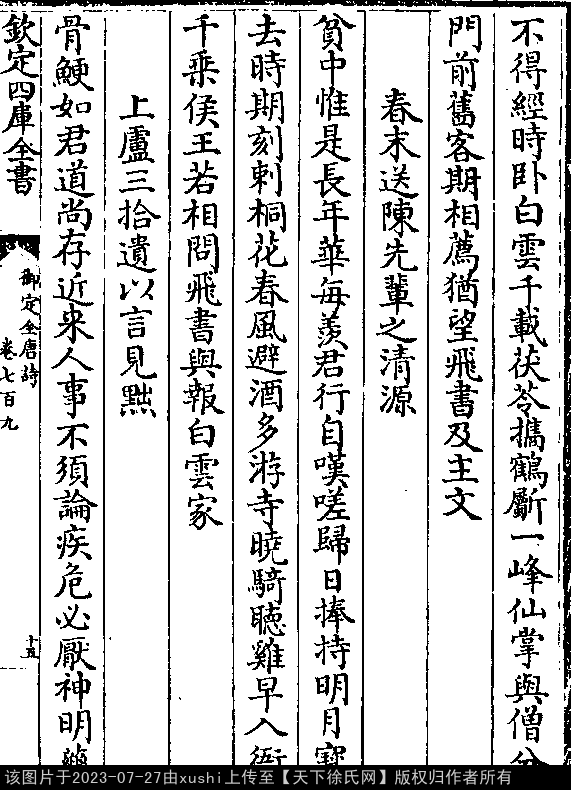 不得經時卧白雲千載茯苓攜鶴斸一峰仙掌與僧分
門前舊客期相薦猶望飛書及主文
春末送陳先輩之清源
貧中惟是長年華每羨君行自嘆嗟歸日捧持明月寳
去時期刻刺桐花春風避酒多游寺曉騎聽雞早入衙
千乘侯王若相問飛書與報白雲家
上盧三拾遺以言見黜
骨鯁如君道尚存近来人事不須論疾危必厭神明藥
欽定四庫全書
御定全唐詩
卷七百九
十五
该图片于2023-07-27由xushi上传至【天下徐氏网】版权归作者所有